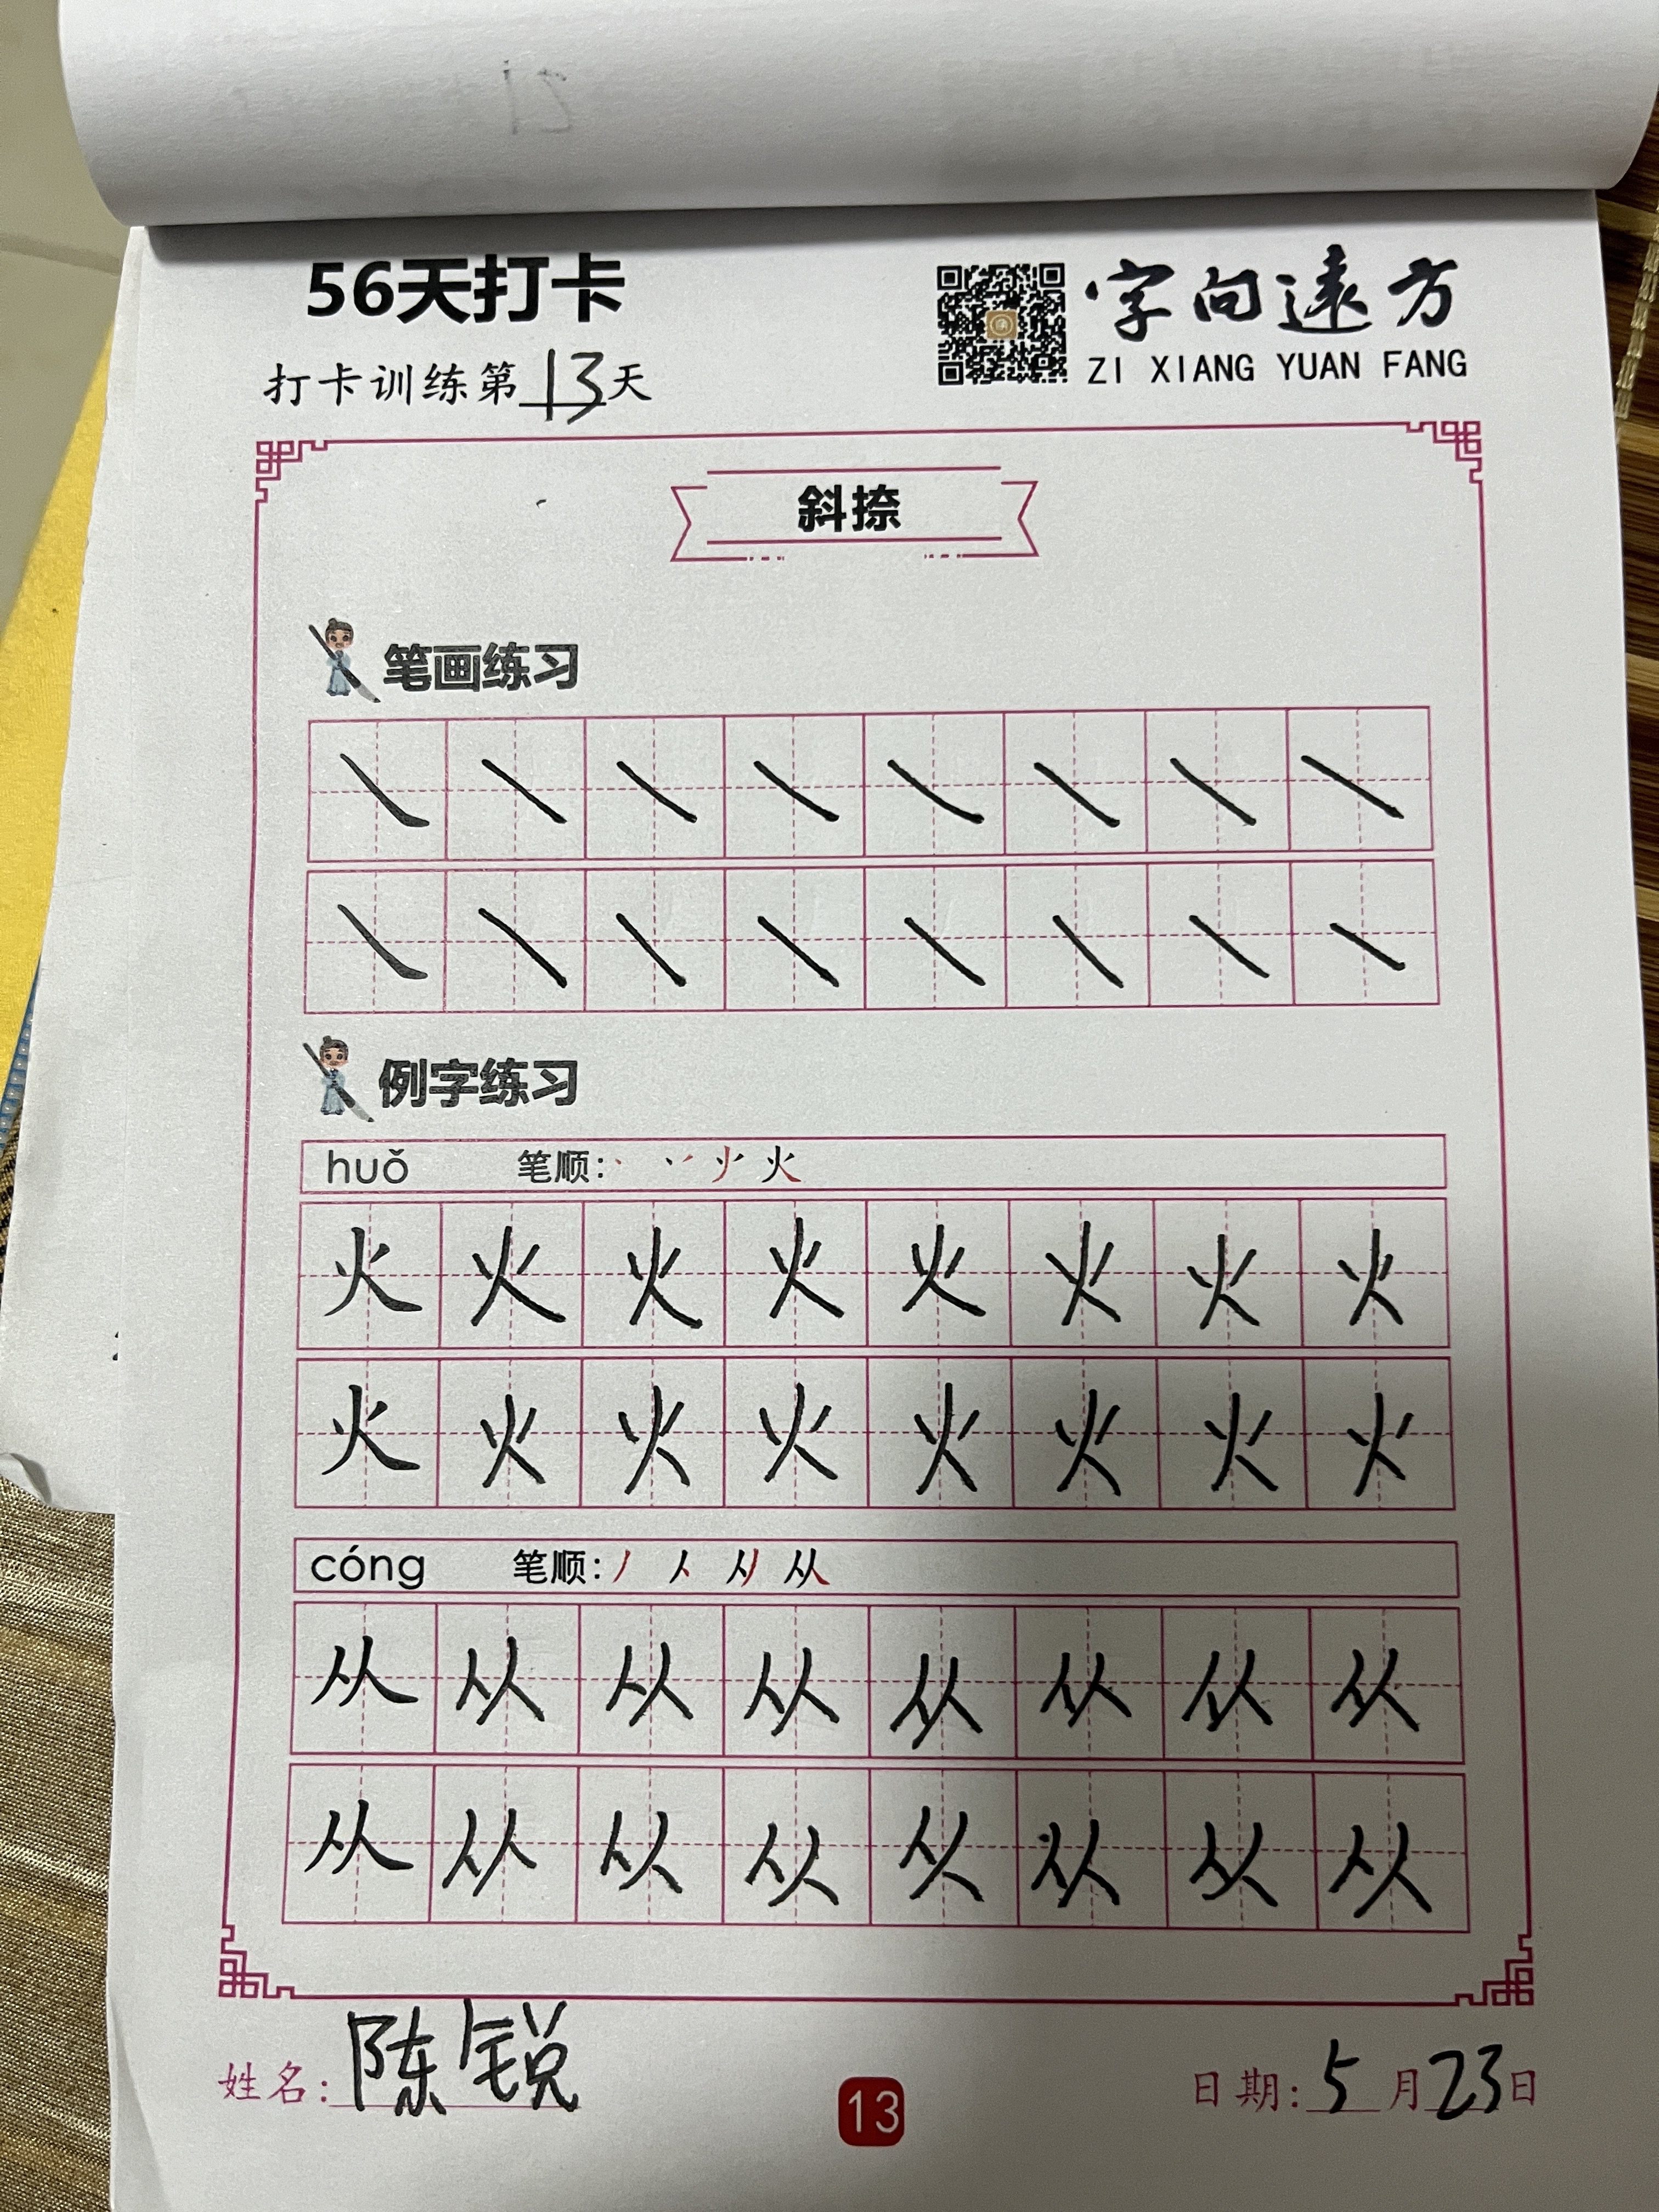 56天打卡
字向遠方
ZI XIANG YUAN FANG
打卡训练第13天
斜捺
笔画练习
例字练习
huǒ 笔顺: 火
火 火 火 火 火 火 火 火
火 火 火 火 火 火 火 火
cóng 笔顺: 丿 人 从
从 从 从 从 从 从 从 从
从 从 从 从 从 从 从 从
姓名: 陈锐
13
日期: 5月23日